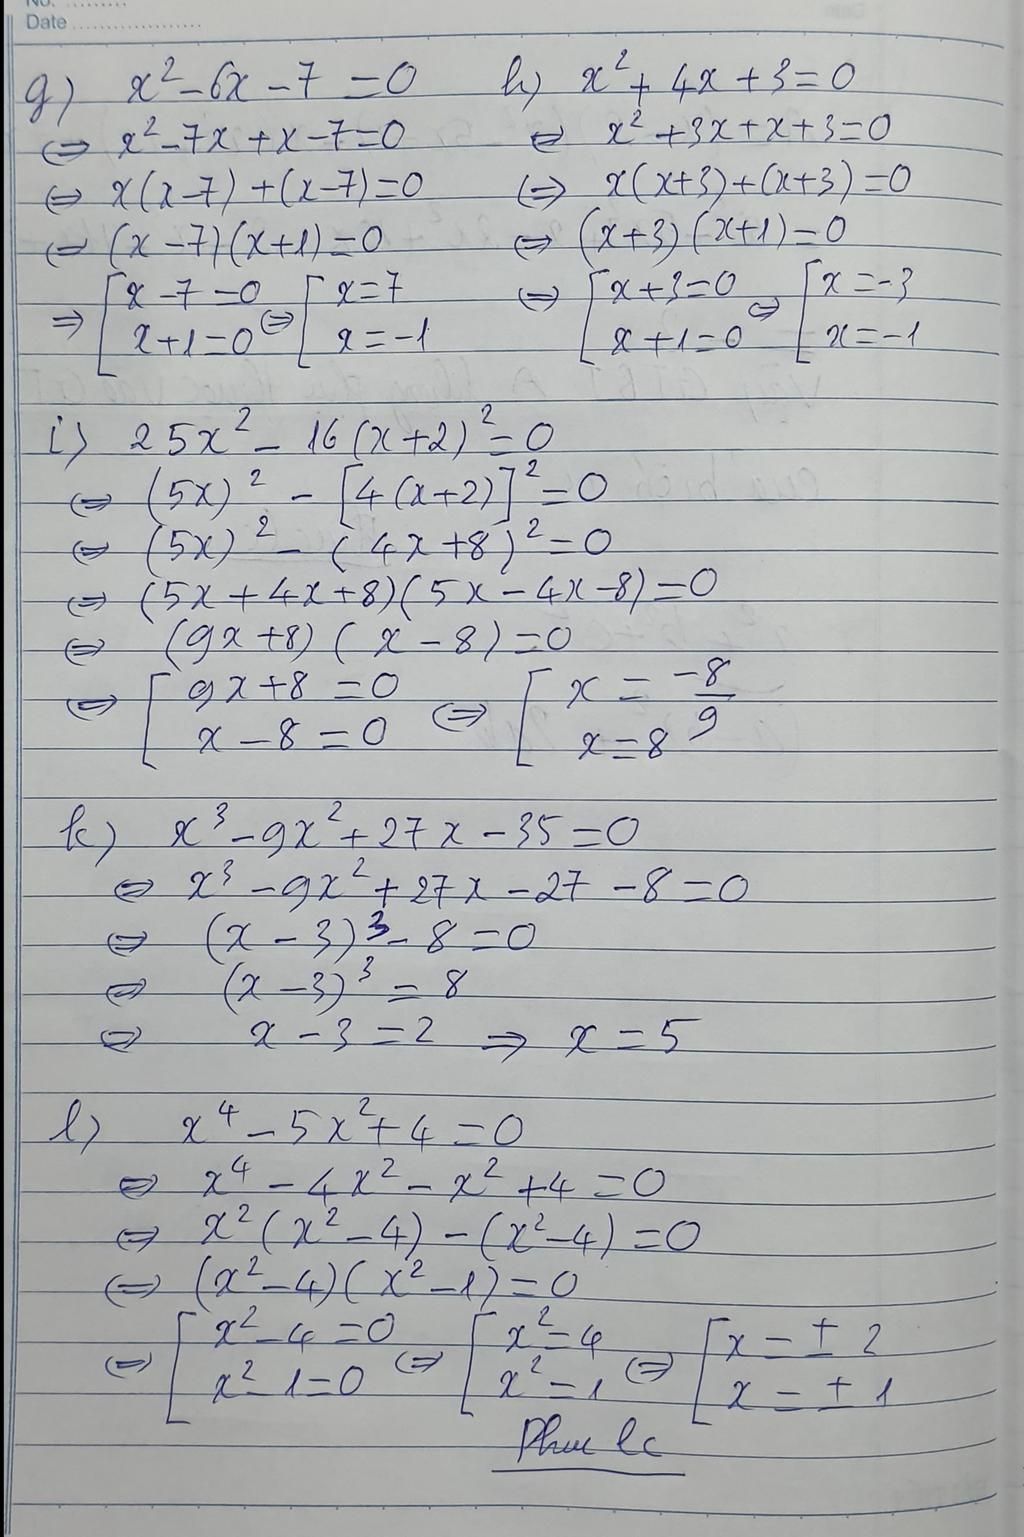 No. .........
Date ...................
g) x² - 6x - 7 = 0
⇔ x² - 7x + x - 7 = 0
⇔ x(x - 7) + (x - 7) = 0
⇔ (x - 7)(x + 1) = 0
⇒ [x - 7 = 0 ⇔ [x = 7
x + 1 = 0 x = -1
h) x² + 4x + 3 = 0
⇔ x² + 3x + x + 3 = 0
⇔ x(x + 3) + (x + 3) = 0
⇔ (x + 3)(x + 1) = 0
⇔ [x + 3 = 0 ⇔ [x = -3
x + 1 = 0 x = -1
i) 25x² - 16(x + 2)² = 0
⇔ (5x)² - [4(x + 2)]² = 0
⇔ (5x)² - (4x + 8)² = 0
⇔ (5x + 4x + 8)(5x - 4x - 8) = 0
⇔ (9x + 8)(x - 8) = 0
⇔ [9x + 8 = 0 ⇔ [x = -8/9
x - 8 = 0 x = 8
k) x³ - 9x² + 27x - 35 = 0
⇔ x³ - 9x² + 27x - 27 - 8 = 0
⇔ (x - 3)³ - 8 = 0
⇔ (x - 3)³ = 8
⇔ x - 3 = 2 ⇒ x = 5
l) x⁴ - 5x² + 4 = 0
⇔ x⁴ - 4x² - x² + 4 = 0
⇔ x²(x² - 4) - (x² - 4) = 0
⇔ (x² - 4)(x² - 1) = 0
⇔ [x² - 4 = 0 ⇔ [x² = 4 ⇔ [x = ± 2
x² - 1 = 0 x² = 1 x = ± 1